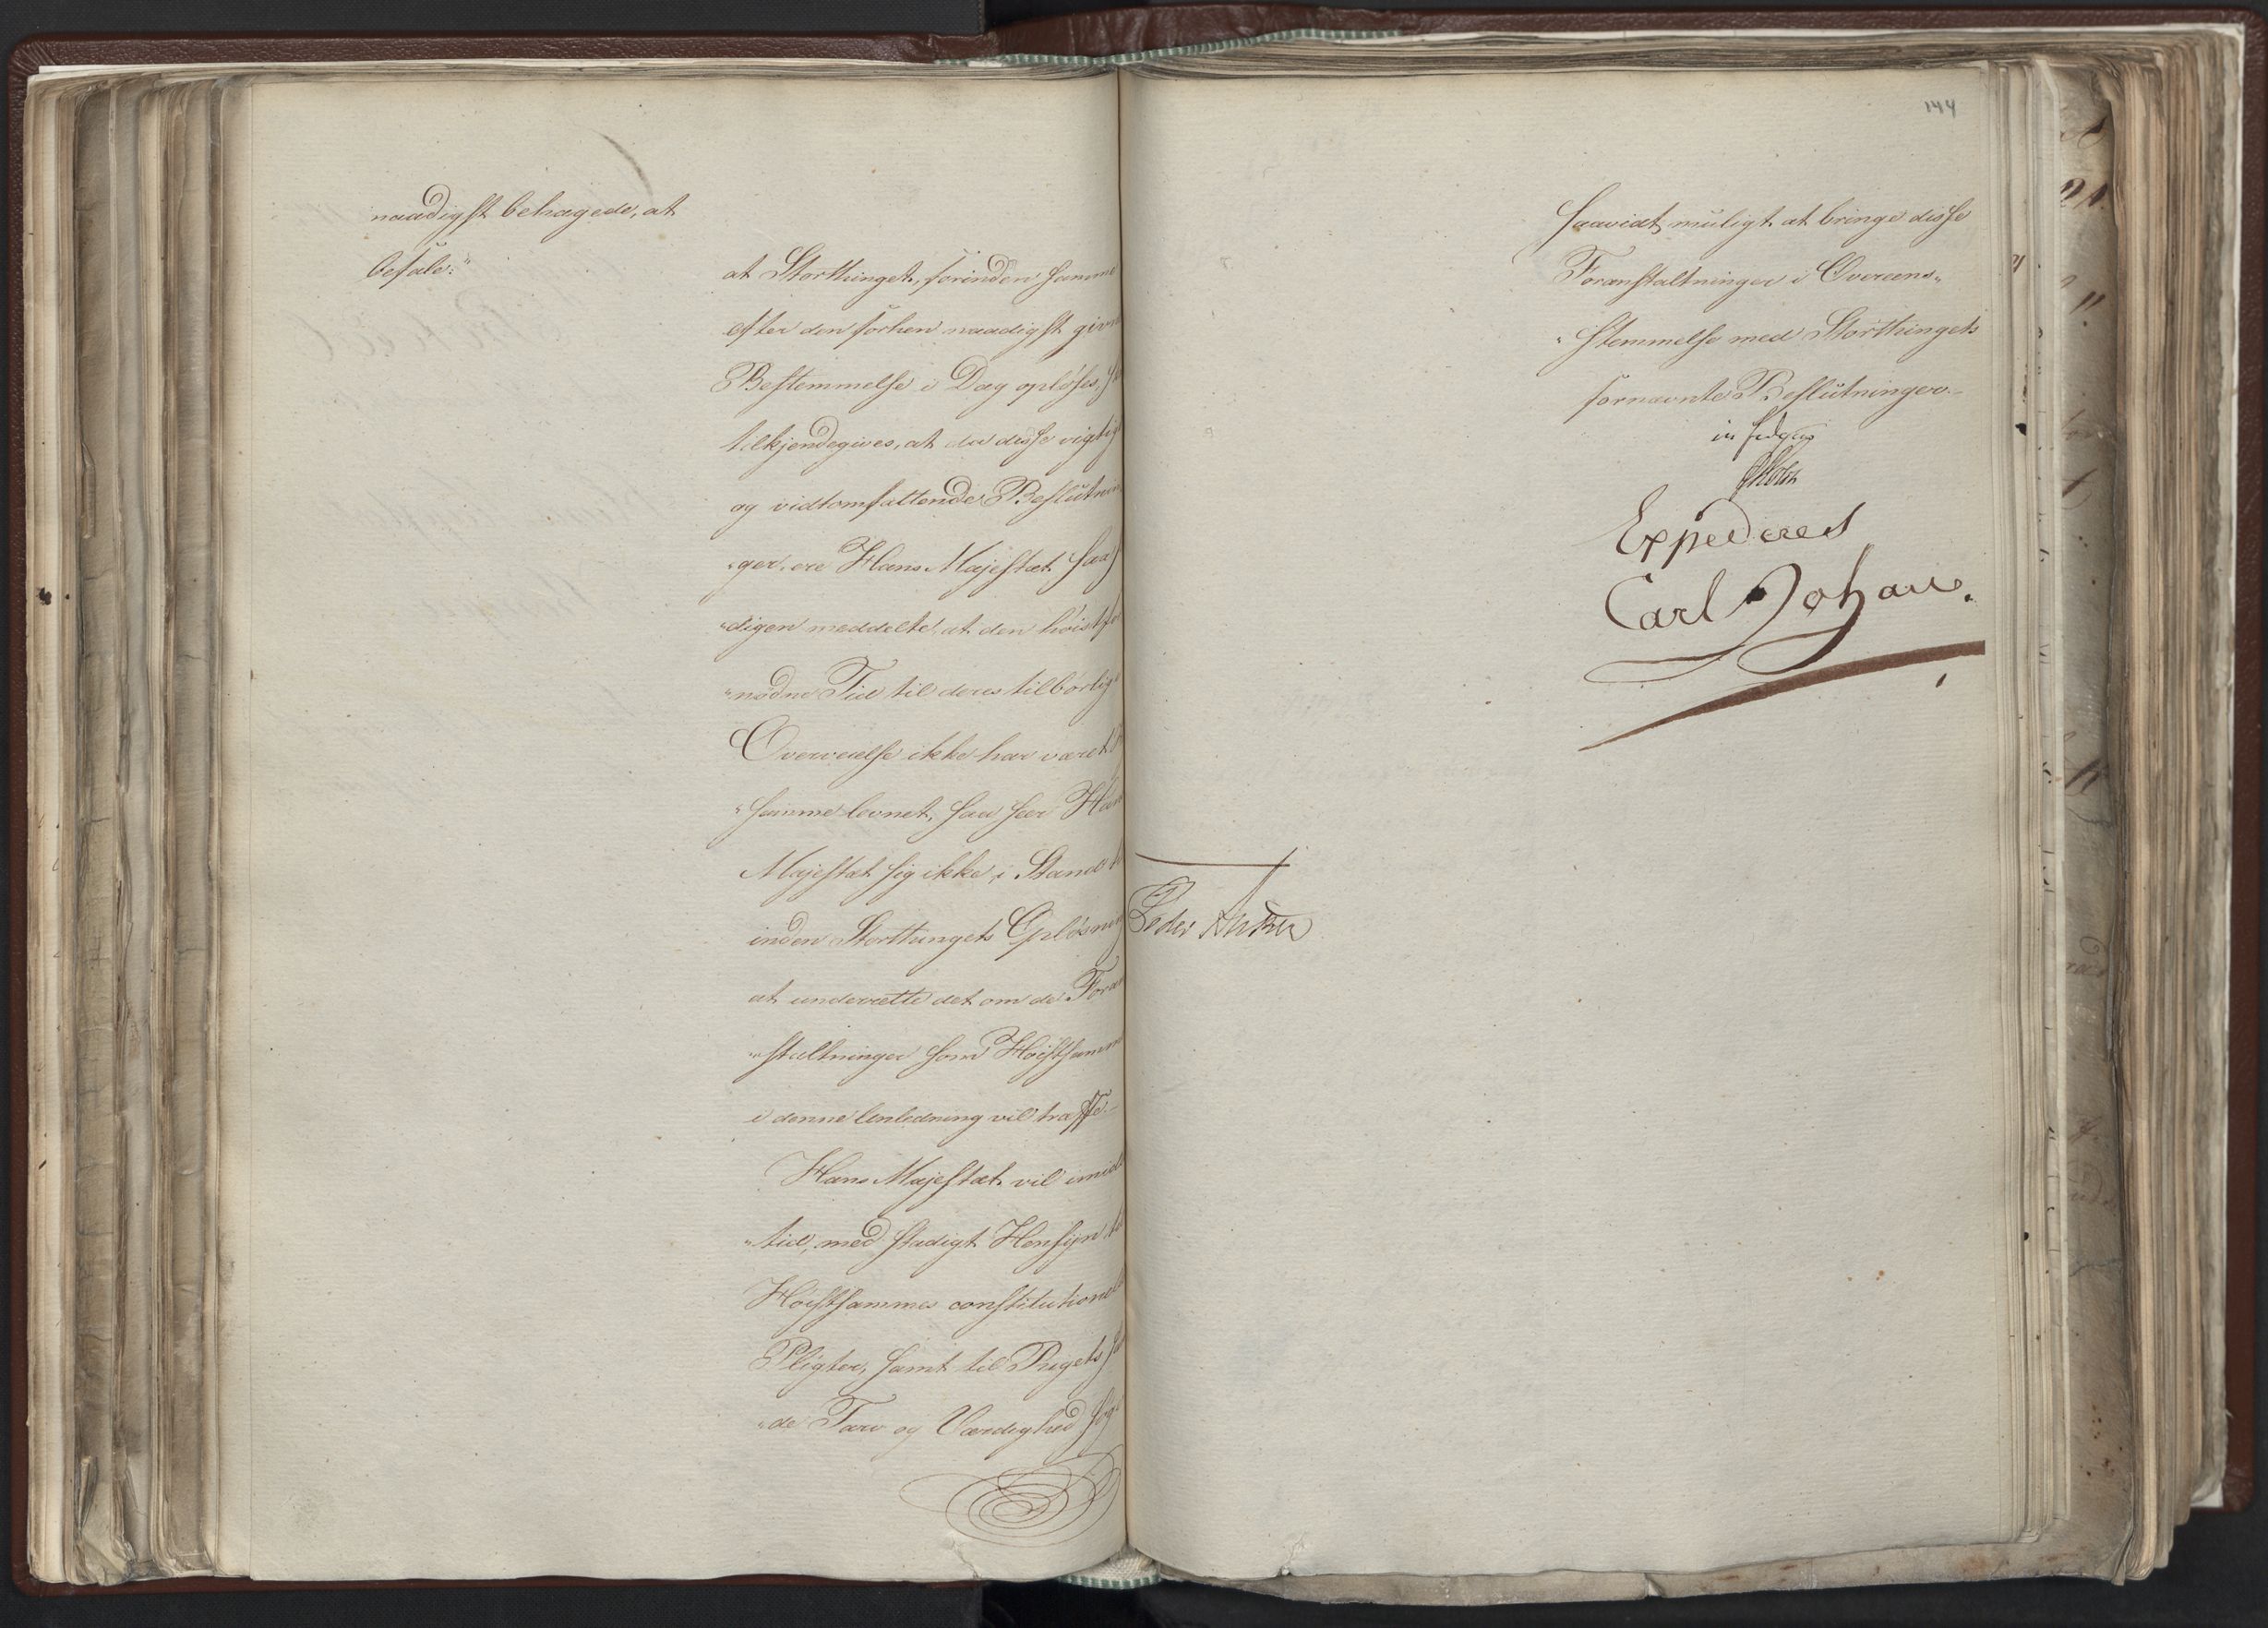 naadigst behagede, at
befale:"
at Storthinget, forinden samme
efter den forhen naadigst givne
Bestemmelse i Dag opløses,
tilkjendegives, at da disse vigtig
og vidtomfattende Beslutnin
"ger, ere Hans Majestæt saa
"digen meddelte, at den höist
"nødne Tid til deres tilbørlig
Overveielse ikke har været
"samme levnet, saa seer Hans
Majestæt sig ikke i Stand
inden Storthingets Opløsning
at underrette det om de Foran
"staltninger som Höistsamme
i denne Anledning vil træffe.-
Hans Majestæt vil imid
"tid, med stadigt Hensyn til
Höistsammes constitutionel
Pligter, samt til Rigets
"de Tarv og Værdighed søge
144
saavidt muligt at bringe disse
Foranstaltninger i Overeens"
"stemmelse med Storthingets
fornævnte Beslutninger.-
in fidem
Holst
Expederes
Carl Johan.
Peder Anker